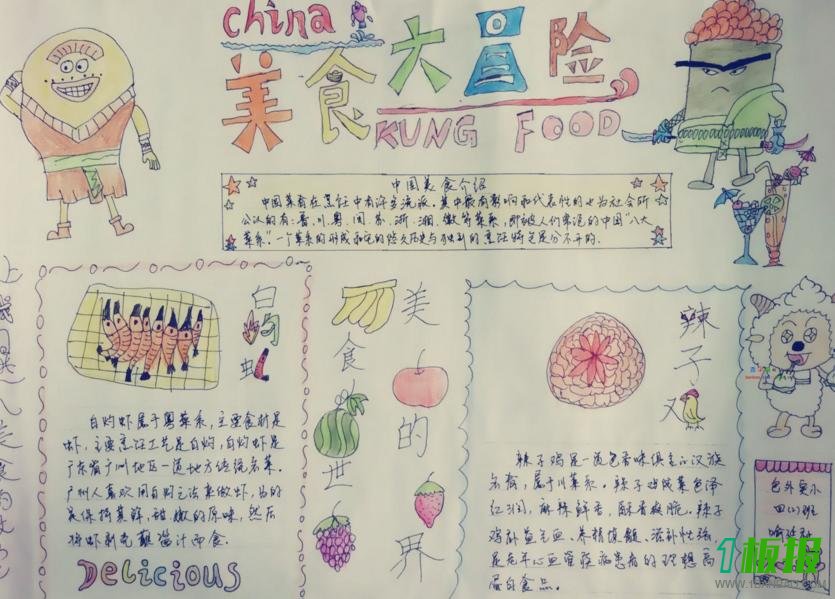 china
美食大冒险
KUNG FOOD
中国美食介绍
中国菜肴在烹饪中有许多流派。其中最有影响和代表性的也为社会所
公认的有：鲁、川、粤、闽、苏、浙、湘、徽等菜系，即被人们常说的中国“八大
菜系”。一个菜系的形成和它的悠久历史与独到的烹饪特色是分不开的。
白灼虾
白灼虾属于粤菜系，主要食材是
虾，主要烹饪工艺是白灼，白灼虾是
广东省广州地区一道地方传统名菜。
广州人喜欢用白灼之法来做虾，为的
是保持其鲜、甜、嫩的原味，然后
将虾剥壳蘸酱汁而食。
Delicious
美食的世界
辣子又
辣子鸡是一道色香味俱全的汉族
名肴，属于川菜系。辣子鸡成菜色泽
红润，麻辣鲜香，酥香爽脆。辣子
鸡补益五脏、养精填髓、滋补性强，
是老年心血管疾病患者的理想高
蛋白食品。
色外实小
四(1)班
1板报